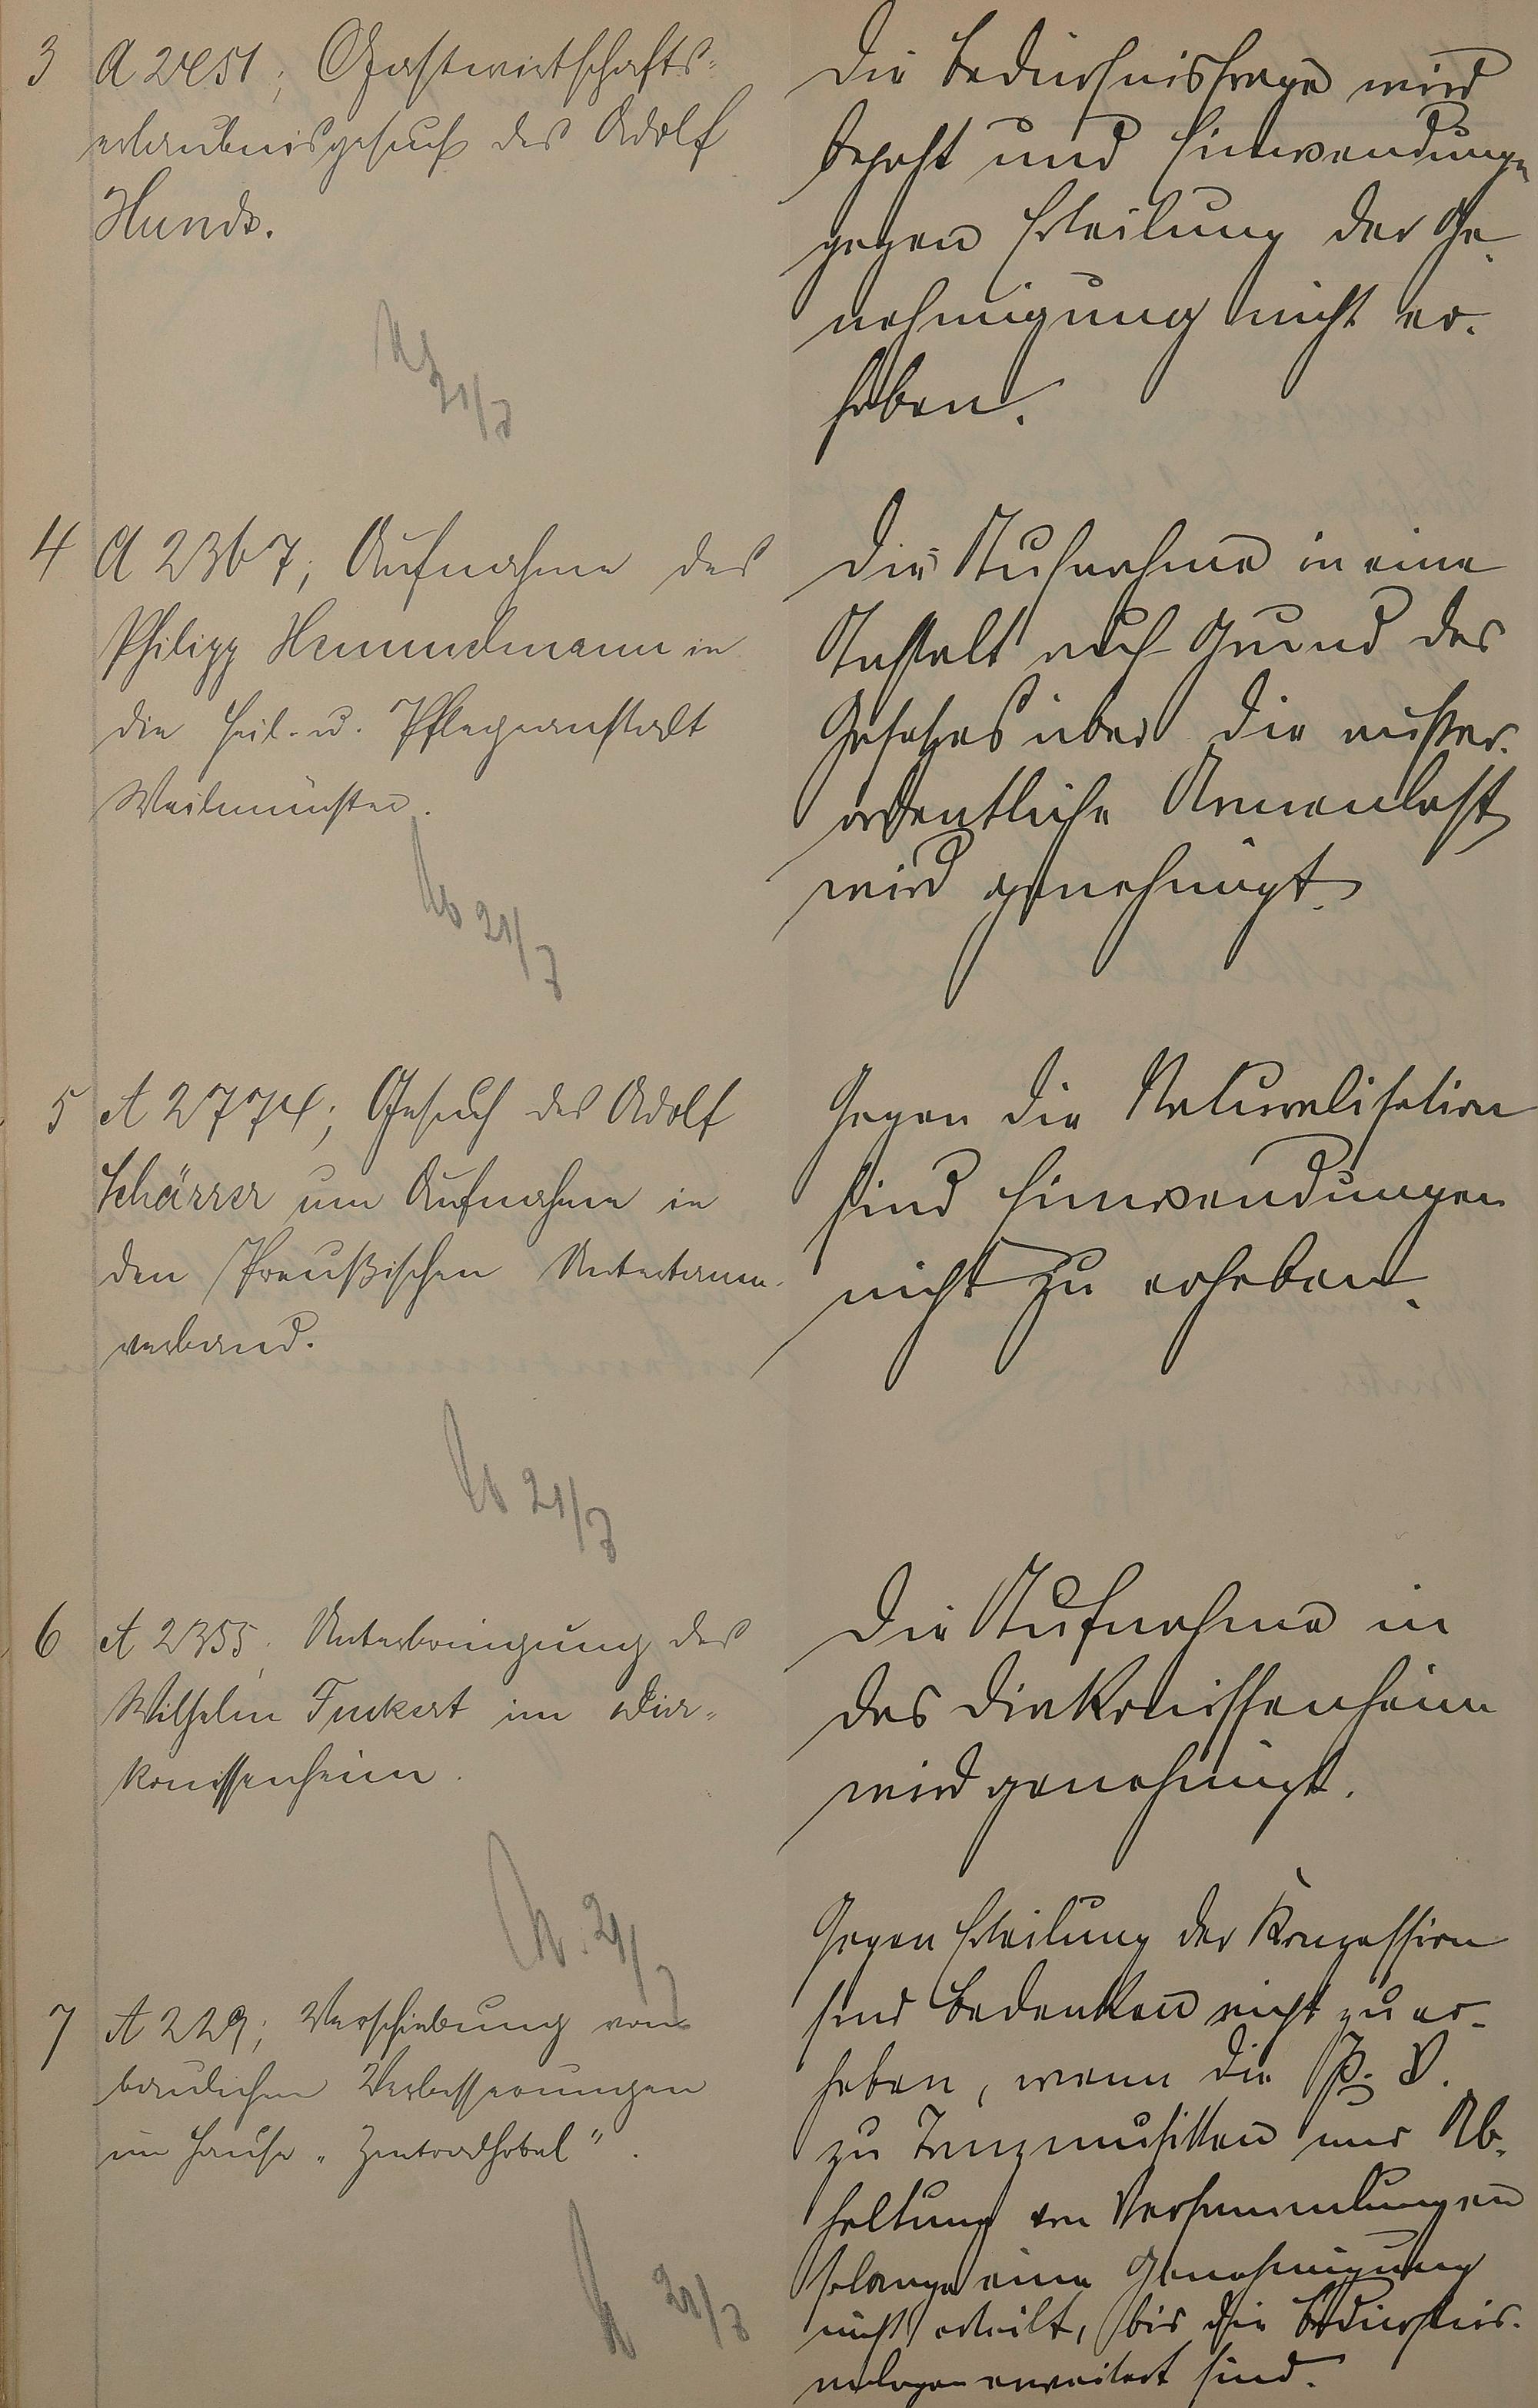 3 A 2451; Gastwirtschafts-
erlaubnisgesuch des Adolf
Hunds.
Die Bedürfnisfrage wird
bejaht und Einwendungen
gegen Erteilung der Ge-
nehmigung nicht er-
hoben.
21/7
4 A 2367; Aufnahme des
Philipp Hemmelmann in
die Heil- u. Pflegeanstalt
Weilmünster.
Die Aufnahme in eine
Anstalt auf Grund des
Gesetzes über die außer-
ordentliche Armenlast
wird genehmigt.
21/7
5 A 2774; Gesuch des Adolf
Schärrer um Aufnahme in
den Preußischen Untertanen-
verband.
Gegen die Naturalisation
sind Einwendungen
nicht zu erheben.
21/7
6 A 2355. Unterbringung des
Wilhelm Fuckert im Dia-
konissenheim.
Die Aufnahme in
das Diakonissenheim
wird genehmigt.
21/7
7 A 229; Verschiebung von
baulichen Verbesserungen
im Hause „Zentralhotel".
Gegen Erteilung der Konzession
sind Bedenken nicht zu er-
heben, wenn die P. V.
zu Tanzmusiken und Ab-
haltung von Versammlungen
solange eine Genehmigung
nicht erteilt, bis die Bedürfnis-
anlagen erweitert sind.
21/7